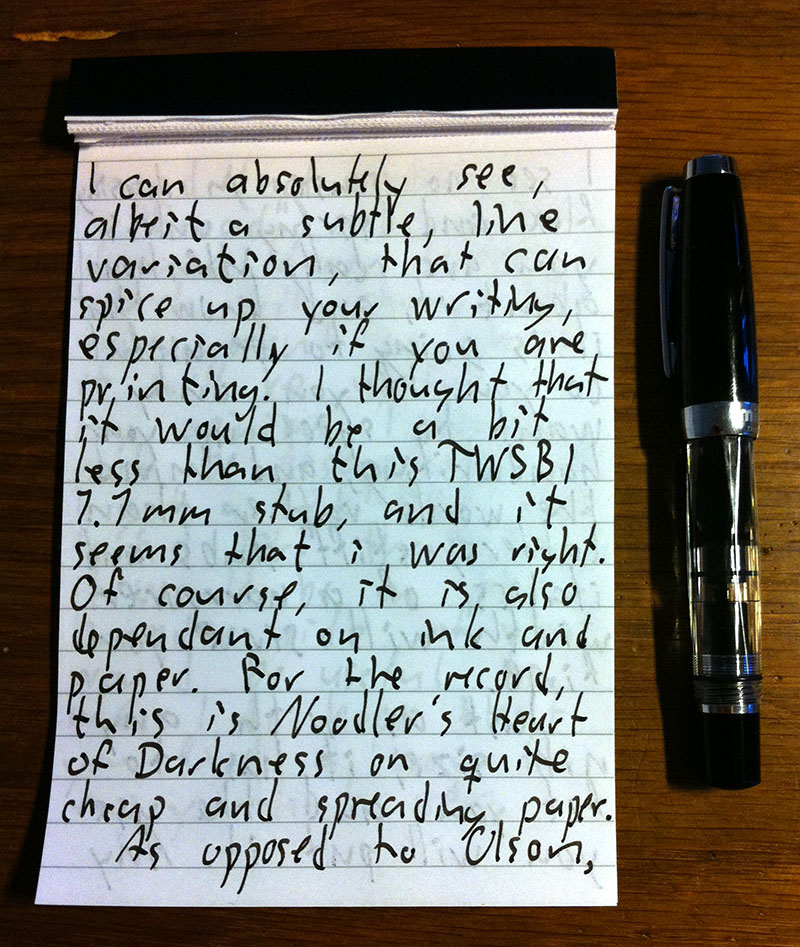 I can absolutely see,
albeit a subtle, line
variation, that can
spice up your writing,
especially if you are
printing. I thought that
it would be a bit
less than this TWSBI
1.1mm stub, and it
seems that i was right.
Of course, it is also
dependant on ink and
paper. For the record,
this is Noodler's Heart
of Darkness on quite
cheap and spreading paper.
As opposed to Olson,